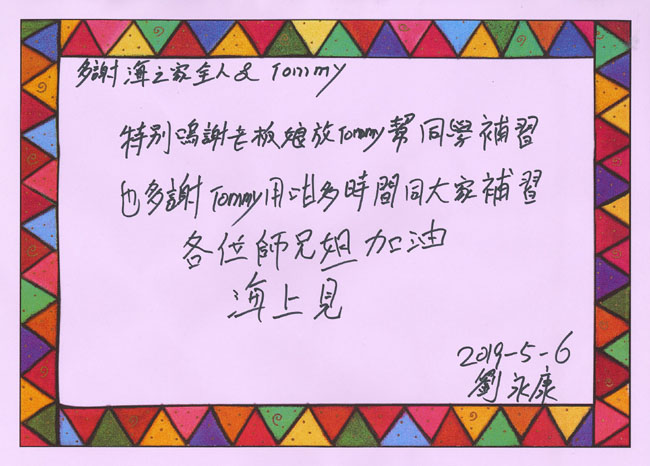 多謝海之家全人& Tommy
特別鳴謝老板娘放Tommy幫同學補習
也多謝Tommy用咁多時間同大家補習
各位師兄姐加油
海上見
2019-5-6
劉永康